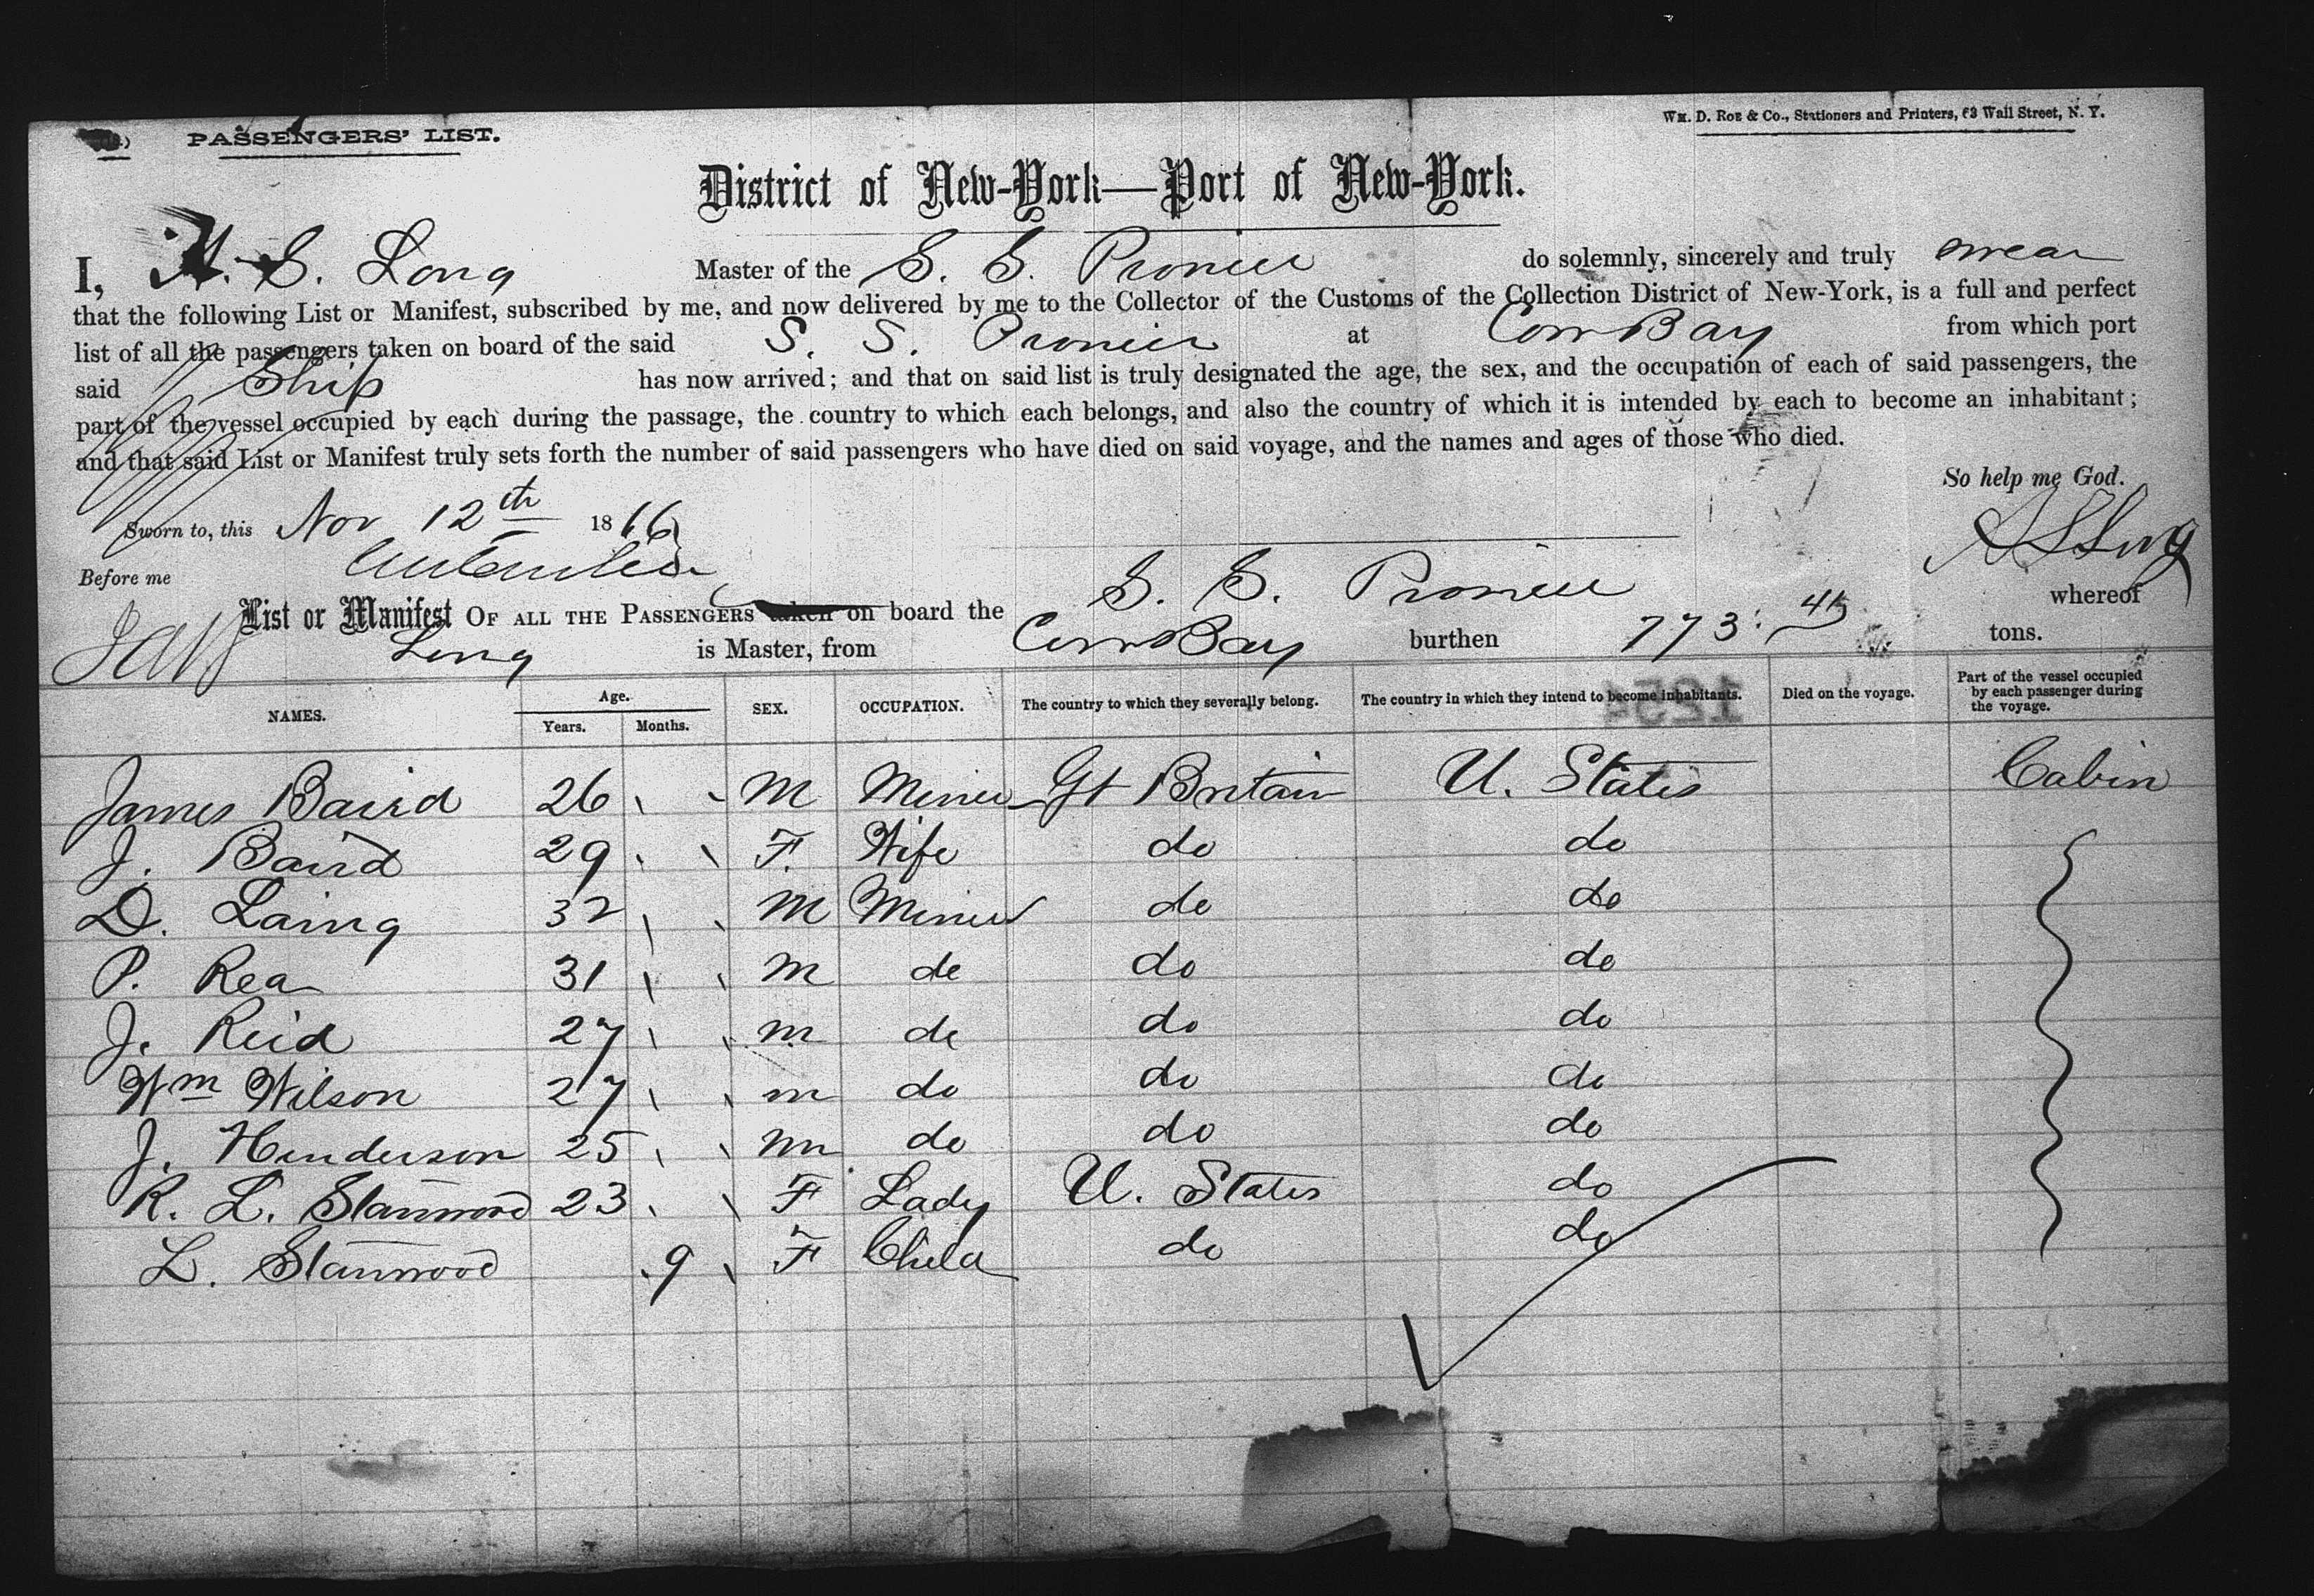 PASSENGERS' LIST.
Wm. D. Roe & Co., Stationers and Printers, 63 Wall Street, N. Y.
District of New-York—Port of New-York.
I, A. S. Long Master of the S. S. Pronier do solemnly, sincerely and truly swear
that the following List or Manifest, subscribed by me, and now delivered by me to the Collector of the Customs of the Collection District of New-York, is a full and perfect
list of all the passengers taken on board of the said S. S. Pronier at Cow Bay from which port
said Ship has now arrived; and that on said list is truly designated the age, the sex, and the occupation of each of said passengers, the
part of the vessel occupied by each during the passage, the country to which each belongs, and also the country of which it is intended by each to become an inhabitant;
and that said List or Manifest truly sets forth the number of said passengers who have died on said voyage, and the names and ages of those who died.
So help me God.
Sworn to, this Nov 12th 1866
A S Long
Before me
List or Manifest OF ALL THE PASSENGERS taken on board the S. S. Pronier whereof
Long is Master, from Cow Bay burthen 773. 45 tons.
NAMES. Age. Years. Months. SEX. OCCUPATION. The country to which they severally belong. The country in which they intend to become inhabitants. Died on the voyage. Part of the vessel occupied by each passenger during the voyage.
1254
James Baird 26 M Miner Gt Britain U. States Cabin
J. Baird 29 F. Wife do do
D. Laing 32 M Miner do do
P. Rea 31 M do do do
J. Reid 27 M do do do
Wm Wilson 27 M do do do
J. Henderson 25 M do do do
R. L. Stanwood 23 F Lady U. States do
L. Stanwood 9 F Child do do